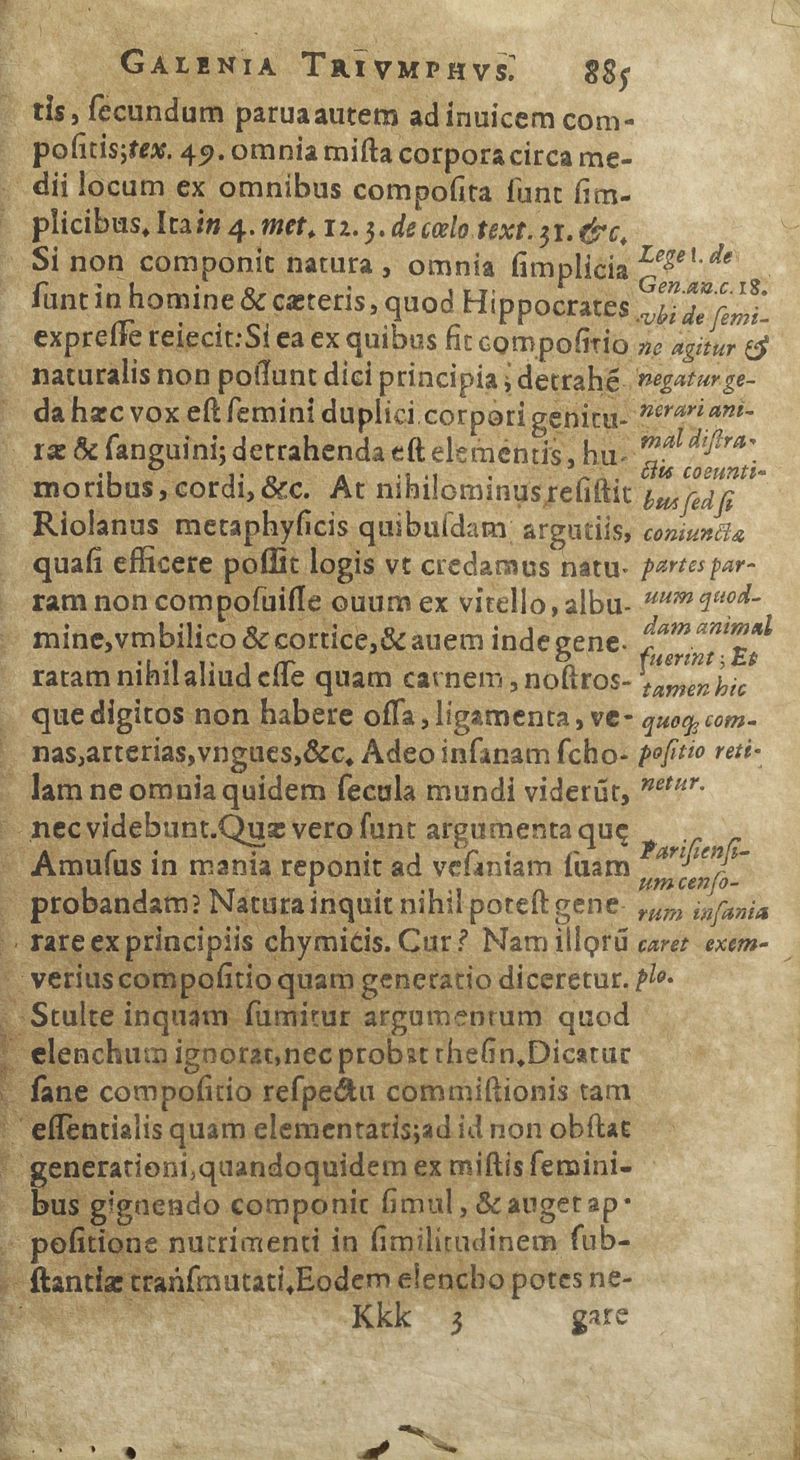 GALENIA TRIVMPHVS. 885
tis, ſecundum parua autem ad inuicem com-
poſitis; tex. 49. omnia miſta corpora circa me-
dii locum ex omnibus compoſita ſunt ſim-
plicibus. Ita in 4. met. 12. 3. de cœlo text. 31. &c.
Si non componit natura, omnia ſimplicia
ſunt in homine & cæteris, quod Hippocrates
expreſſe reiecit: Si ea ex quibus fit compoſitio
naturalis non poſſunt dici principia; detrahē
da hæc vox eſt ſemini duplici corpori genitu-
ræ & ſanguini; detrahenda eſt elementis, hu-
moribus, cordi, &c. At nihilominus reſiſtit
Riolanus metaphyſicis quibuſdam argutiis,
quaſi efficere poſſit logis vt credamus natu-
ram non compoſuiſſe ouum ex vitello, albu-
mine, vmbilico & cortice, & auem inde gene-
ratam nihil aliud eſſe quam carnem, noſtros-
que digitos non habere oſſa, ligamenta, ve-
nas, arterias, vngues, &c. Adeo inſanam ſcho-
lam ne omnia quidem ſecula mundi viderūt,
nec videbunt. Quæ vero ſunt argumenta quę
Amuſus in mania reponit ad veſaniam ſuam
probandam? Natura inquit nihil poteſt gene-
rare ex principiis chymicis. Cur? Nam illorū
verius compoſitio quam generatio diceretur.
Stulte inquam ſumitur argumentum quod
elenchum ignorat, nec probat theſin. Dicatur
ſane compoſitio reſpectu commiſtionis tam
eſſentialis quam elementaris; ad id non obſtat
generationi, quandoquidem ex miſtis ſemini-
bus gignendo componit ſimul, & auget ap-
poſitione nutrimenti in ſimilitudinem ſub-
ſtantiæ tranſmutati. Eodem elencho potes ne-
Kkk 3 gare
Lege 1. de
Gen. an. c. 18.
vbi de ſemi-
ne agitur &
negatur ge-
nerari ani-
mal diſtra-
ctis coeunti-
bus ſed ſi
coniuncta
partes par-
uum quod-
dam animal
fuerint; Et
tamen hic
quoq; com-
poſitio reti-
netur.
Pariſienſi-
um cenſo-
rum inſania
caret exem-
plo.